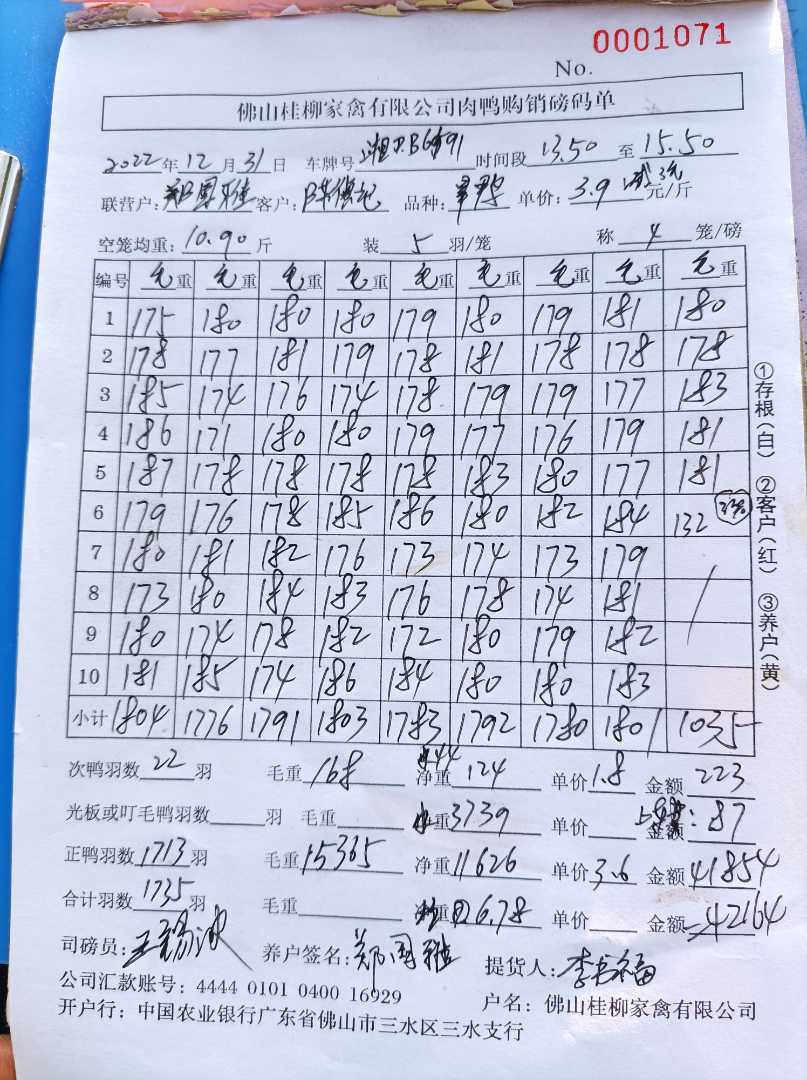 0001071
No.
佛山桂柳家禽有限公司肉鸭购销磅码单
2022年12月31日 车牌号 时间段 13.50 至 15.50
联营户:郑国雅 客户: 品种: 单价:3.9 减3元 元/斤
空笼均重:10.90斤 装 5 羽/笼 称 4 笼/磅
编号 毛重 毛重 毛重 毛重 毛重 毛重 毛重 毛重 毛重
1 175 180 180 180 179 180 179 181 180
2 178 177 181 179 178 181 178 178 178
3 185 174 176 174 178 179 179 177 183
4 186 171 180 180 179 177 176 179 181
5 187 178 178 178 178 183 180 177 181
6 179 176 178 185 186 180 182 184 132
7 180 181 182 176 173 174 173 179
8 173 180 184 183 176 178 174 181
9 180 174 178 182 172 180 179 182
10 181 185 174 186 184 180 180 183
小计 1804 1776 1791 1803 1783 1792 1780 1801 1035
次鸭羽数 22 羽 毛重 168 44 净重 124 单价 1.8 金额 223
光板或叮毛鸭羽数 羽 毛重 重 3739 单价 金额 : 87
正鸭羽数 1713 羽 毛重 15365 净重 11626 单价 3.6 金额 41854
合计羽数 1735 羽 毛重 重 6.78 单价 金额 =42164
司磅员: 养户签名:郑国雅 提货人:李书福
公司汇款账号:4444 0101 0400 16929 户名:佛山桂柳家禽有限公司
开户行:中国农业银行广东省佛山市三水区三水支行
①存根(白) ②客户(红) ③养户(黄)